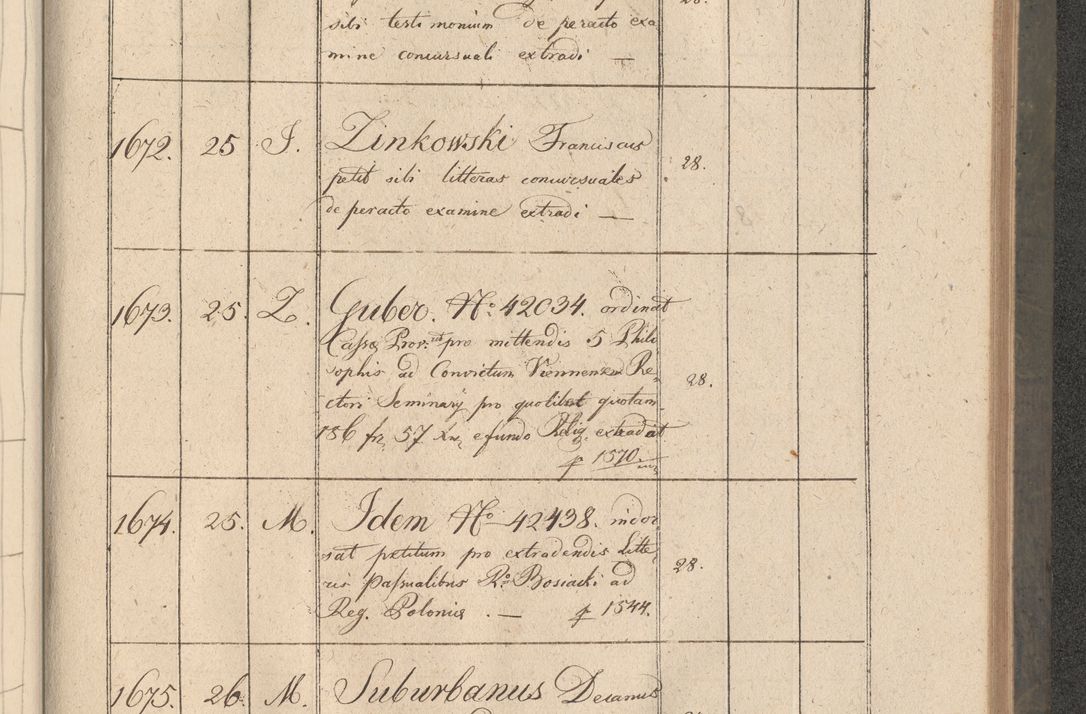 sibi testimonium de peracto exa
mine concursuali extradi —
1672. 25 J. Zinkowski Franciscus
petit sibi litteras concursuales 28.
de peracto examine extradi —
1673. 25. Z. Guber. No. 42034. ordinat
Cassæ Prov. ut pro mittendis 5 Philo
sophis ad Convictum Viennensem Re,
ctori Seminarij pro quolibet quotam 28.
156 fr. 57 Xr. e fundo Relig. extradat
1570.
1674. 25. M. Idem No. 42438. indor,
sat petitum pro extradendis Litte,
ris Passualibus Ro. Bosiacki ad 28.
Reg. Poloniæ. — 1544.
1675. 26. M. Suburbanus Decanus